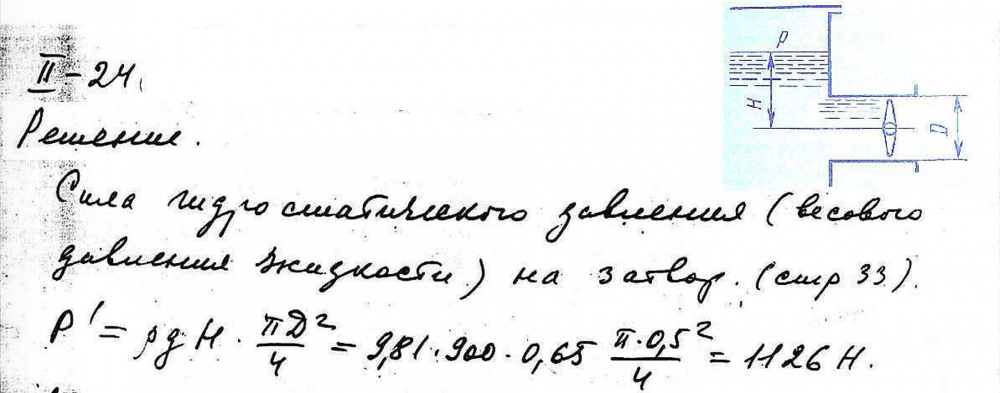 II-24.
Решение.
p
H
D
Сила гидростатического давления (весового
давления жидкости) на затвор. (стр 33).
P' = ρgH · πD²/4 = 9,81·900·0,65 π·0,5²/4 = 1126 Н.